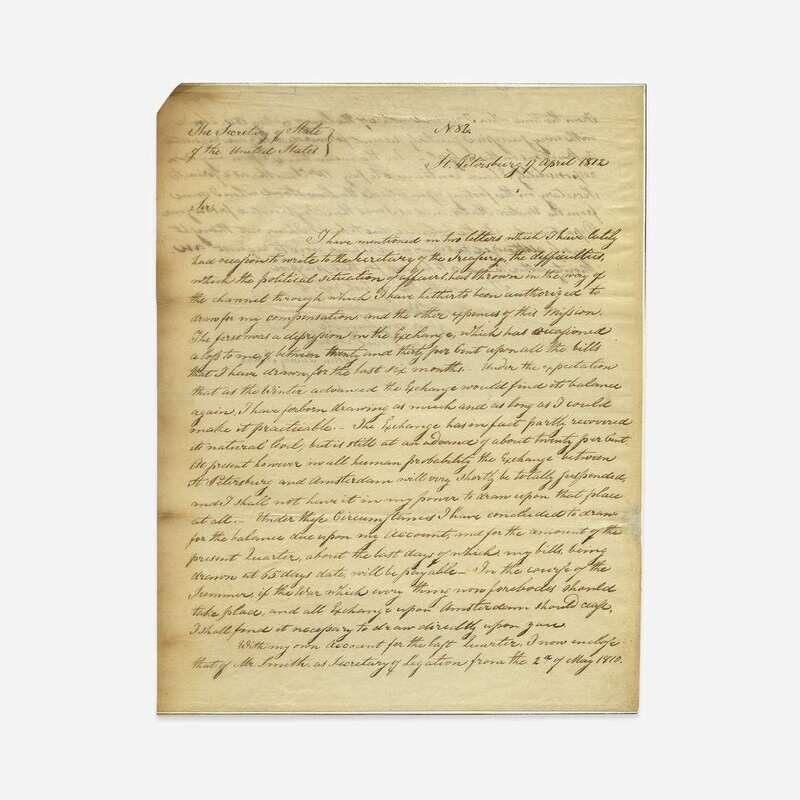 The Secretary of State
of the United States }
N 82.
St. Petersburg 9 April 1812
Sir.
I have mentioned in two letters which I have lately
had occasion to write to the Secretary of the Treasury, the difficulties,
which the political situation of affairs has thrown in the way of
the channel through which I have hitherto been authorized to
draw for my compensation, and the other expenses of this Mission.
The first was a depression in the Exchange, which has occasioned
a loss to me, of between twenty and thirty per Cent upon all the bills
that I have drawn for the last six months. Under the expectation
that as the Winter advanced the Exchange would find its balance
again, I have forborn drawing as much and as long as I could
make it practicable. — The Exchange has in fact partly recovered
its natural level, but is still at an advance of about twenty per Cent.
At present however in all human probability the Exchange between
St Petersburg and Amsterdam will very shortly be totally suspended,
and I shall not have it in my power to draw upon that place
at all. — Under these Circumstances I have concluded to draw
for the balance due upon my Accounts, and for the amount of the
present Quarter, about the last days of which, my bills, being
drawn at 65 days date, will be payable — In the course of the
Summer, if the War which every thing now forebodes should
take place, and all Exchange upon Amsterdam should cease,
I shall find it necessary to draw directly upon you.
With my own Account for the last Quarter, I now enclose
that of Mr Smith, as Secretary of Legation from the 2d of May 1810.